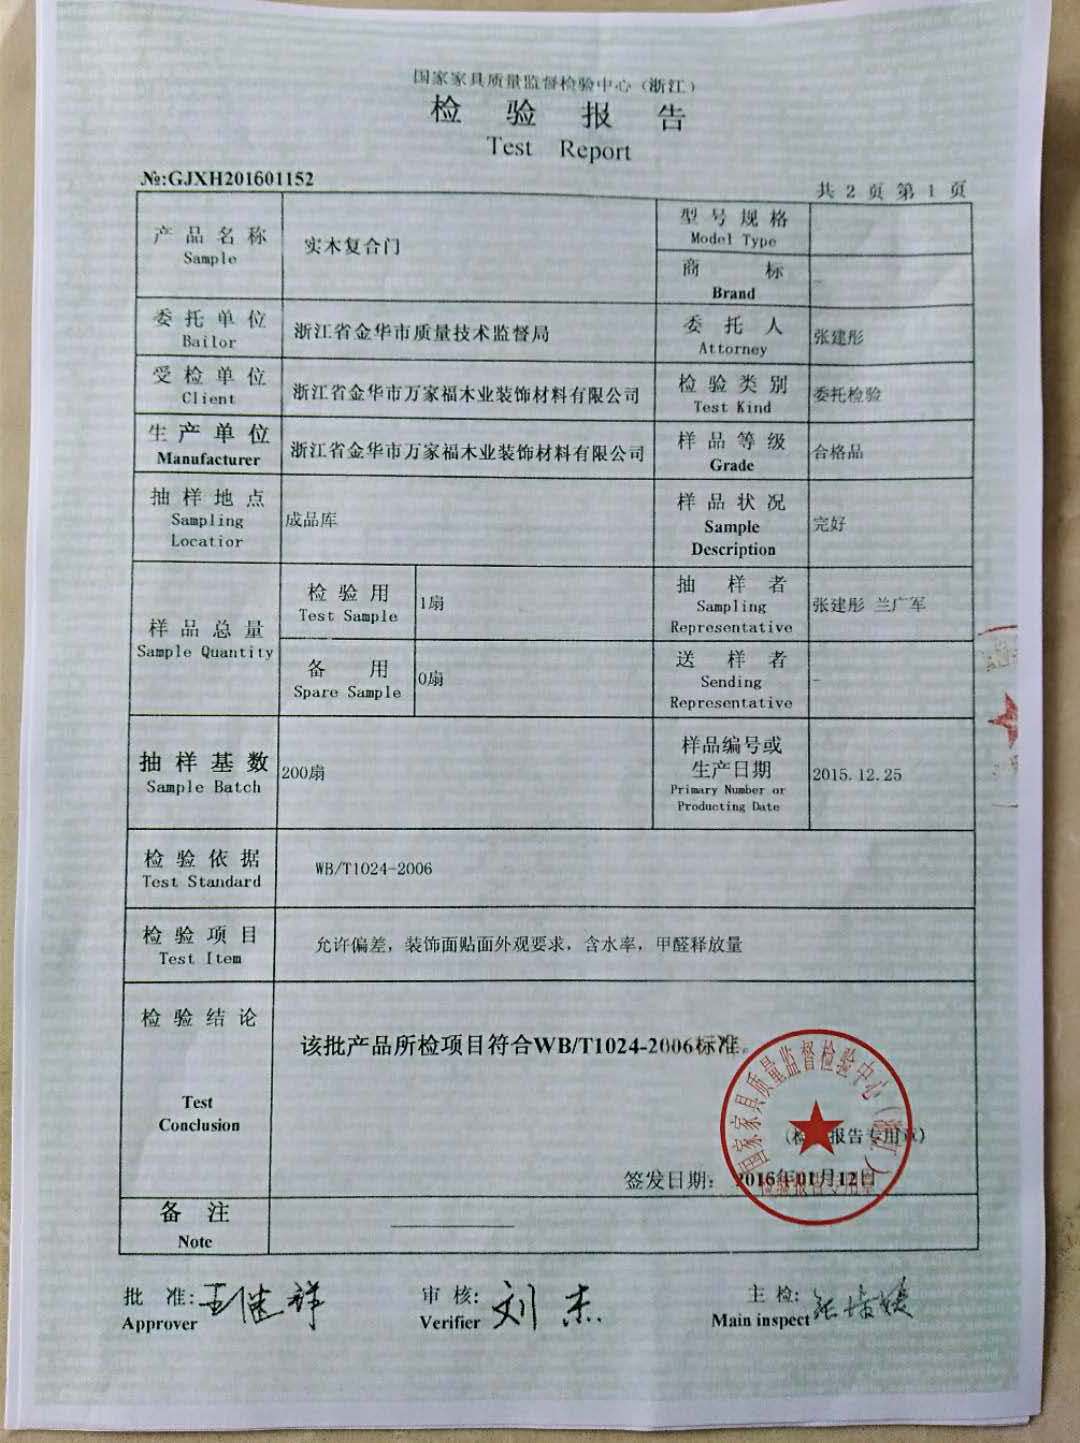 国家家具质量监督检验中心（浙江）
检验报告
Test Report
№:GJXH201601152
共 2 页 第 1 页
产品名称
Sample
实木复合门
型号规格
Model Type
商标
Brand
-
委托单位
Bailor
浙江省金华市质量技术监督局
委托人
Attorney
张建彤
受检单位
Client
浙江省金华市万家福木业装饰材料有限公司
检验类别
Test Kind
委托检验
生产单位
Manufacturer
浙江省金华市万家福木业装饰材料有限公司
样品等级
Grade
合格品
抽样地点
Sampling
Locatior
成品库
样品状况
Sample
Description
完好
样品总量
Sample Quantity
检验用
Test Sample
1扇
抽样者
Sampling
Representative
张建彤 兰广军
备用
Spare Sample
0扇
送样者
Sending
Representative
-
抽样基数
Sample Batch
200扇
样品编号或
生产日期
Primary Number or
Producting Date
2015.12.25
检验依据
Test Standard
WB/T1024-2006
检验项目
Test Item
允许偏差，装饰面贴面外观要求，含水率，甲醛释放量
检验结论
Test
Conclusion
该批产品所检项目符合WB/T1024-2006标准。
国家家具质量监督检验中心（浙江）
检验报告专用章
（检验报告专用章）
签发日期： 2016年01月12日
备注
Note
批准:
Approver
王继祥
审核:
Verifier
刘杰
主检:
Main inspect